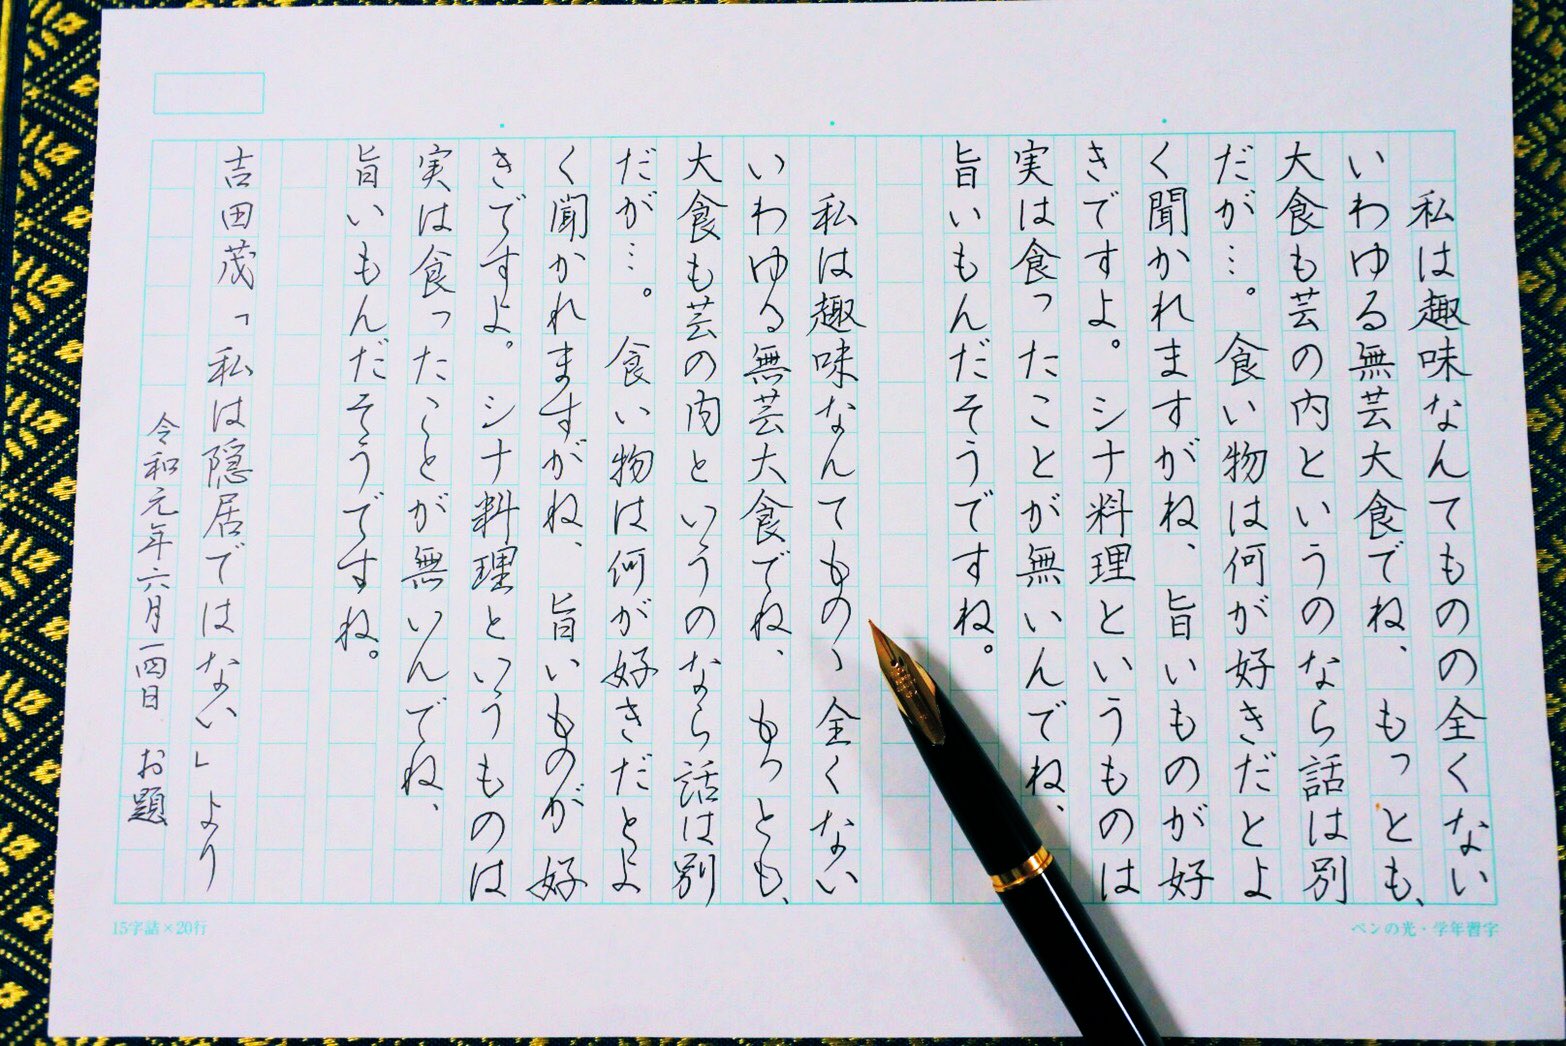 私は趣味なんてものの全くない
いわゆる無芸大食でね、もっとも、
大食も芸の内というのなら話は別
だが…。食い物は何が好きだとよ
く聞かれますがね、旨いものが好
きですよ。シナ料理というものは
実は食ったことが無いんでね、
旨いもんだそうですね。
私は趣味なんてものゝ全くない
いわゆる無芸大食でね、もっとも、
大食も芸の内というのなら話は別
だが…。食い物は何が好きだとよ
く聞かれますがね、旨いものが好
きですよ。シナ料理というものは
実は食ったことが無いんでね、
旨いもんだそうですね。
吉田茂「私は隠居ではない」より
令和元年六月一四日 お題
ペンの光・学年習字
15字詰×20行